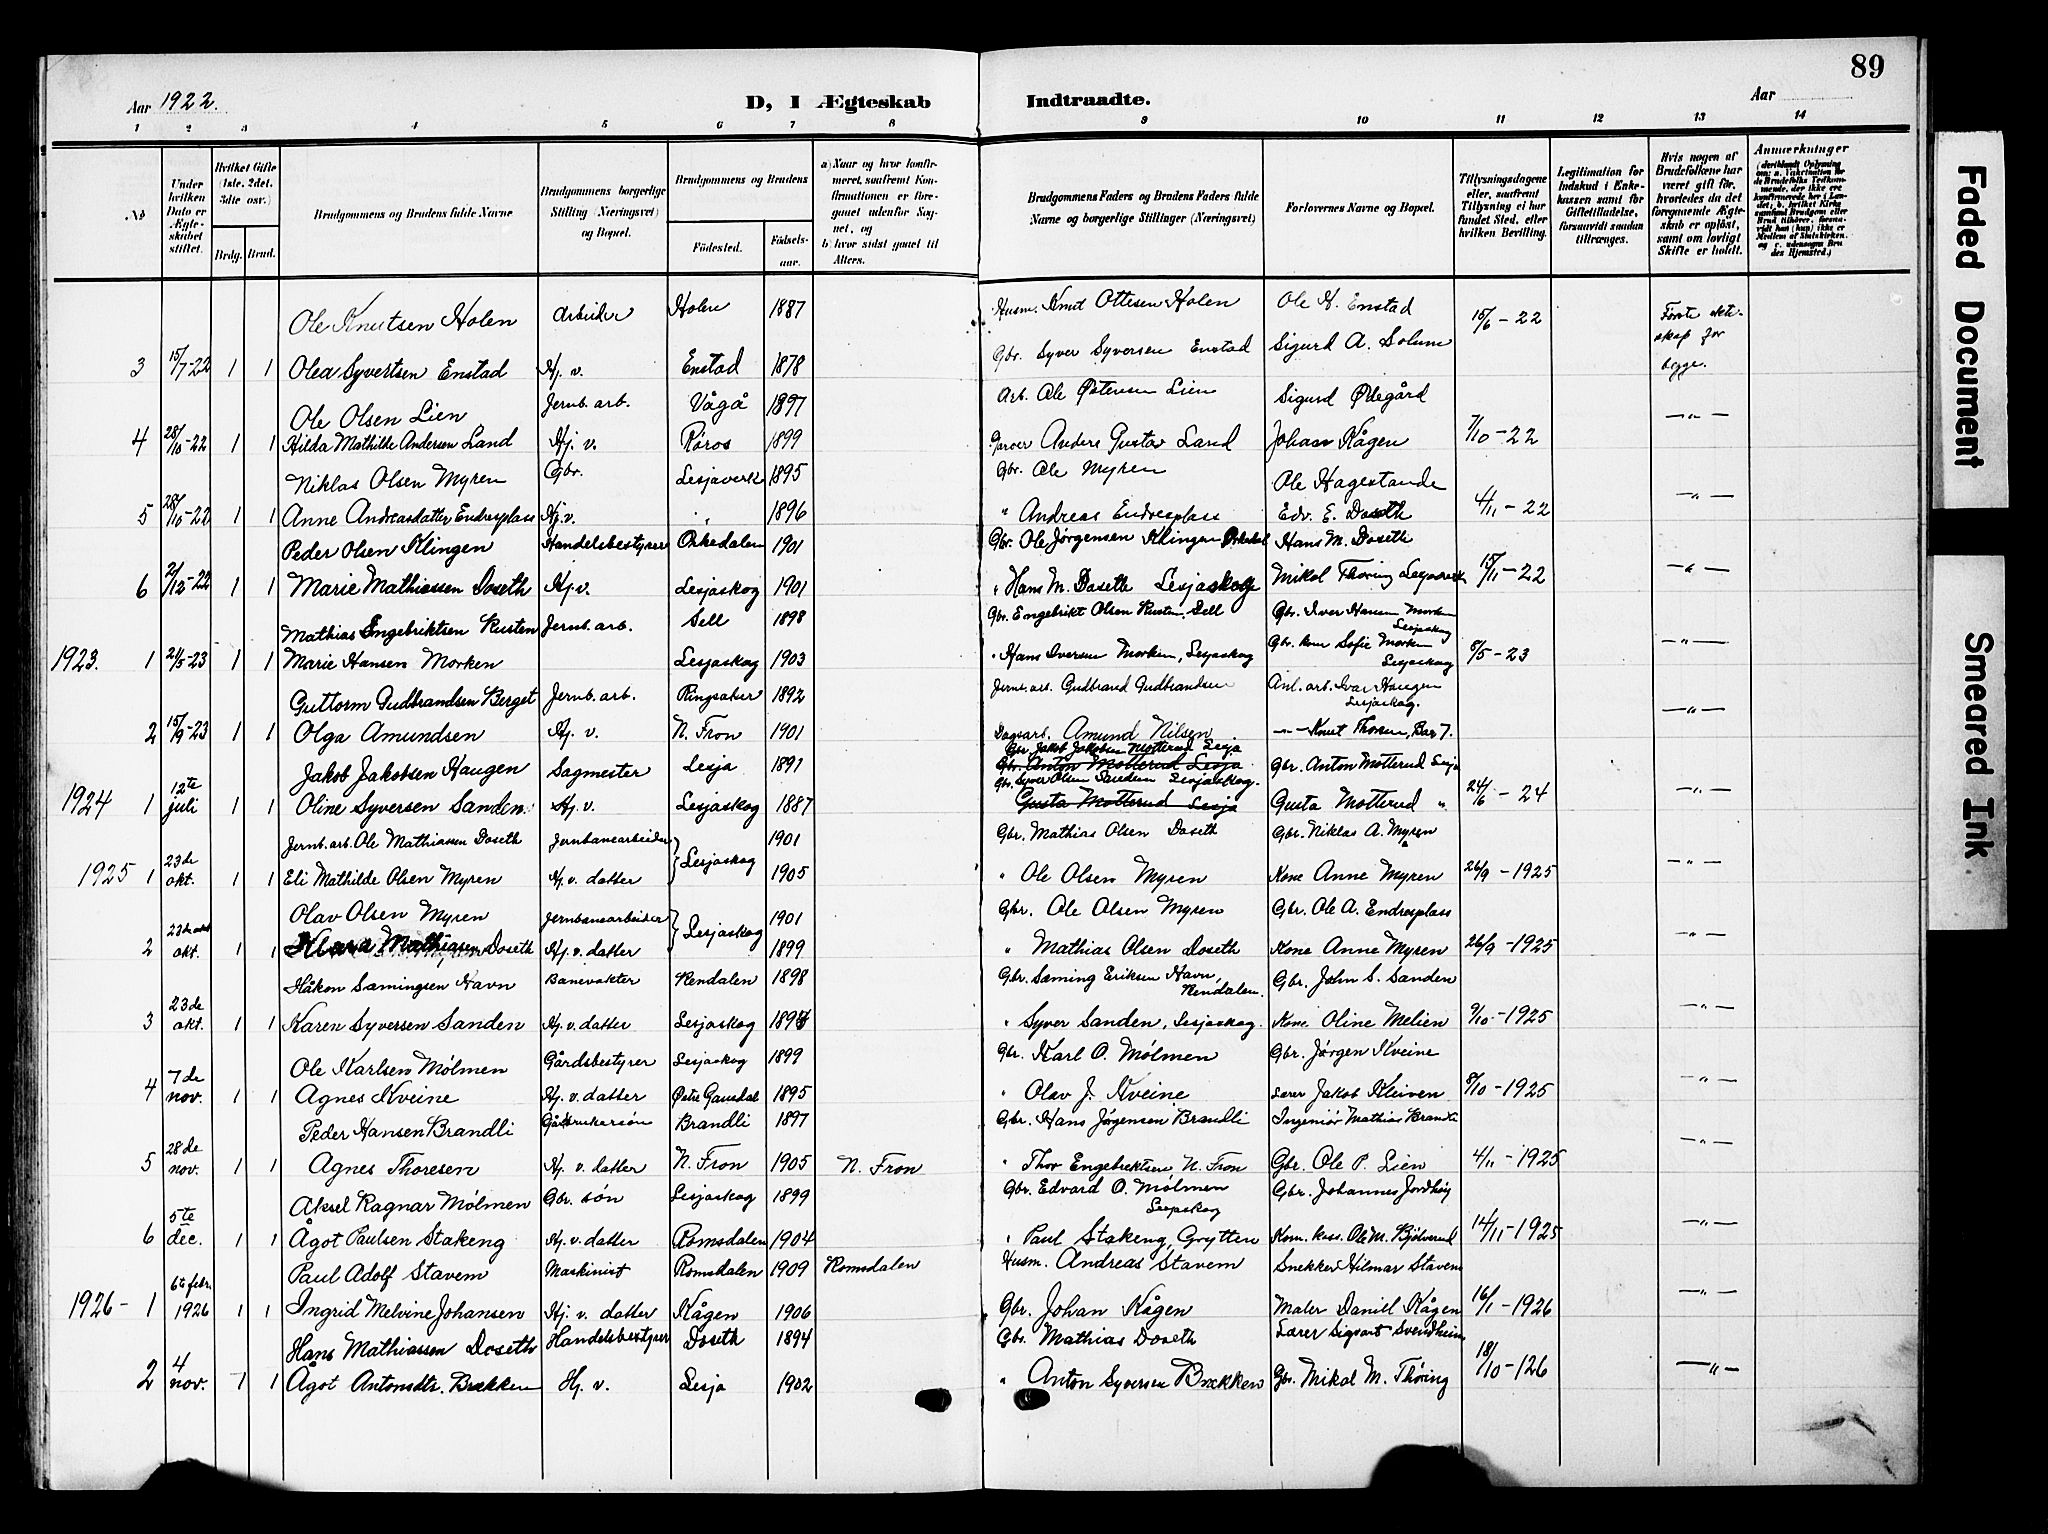 89
Aar 1922.
D, I Ægteskab Indtraadte.
Aar
1 2 3 4 5 6 7 8 9 10 11 12 13 14
No
Under hvilken Dato er Ægteskabet stiftet.
Hvilket Gifte (1ste, 2det, 3die osv.)
Brdg. Brud.
Brudgommens og Brudens fulde Navne
Brudgommens borgerlige Stilling (Næringsvei) og Bopæl.
Brudgommens og Brudens
Fødested.
Fødselsaar.
a) Naar og hvor konfirmeret, saafremt Konfirmationen er foregaaet udenfor Sognet, og
b) hvor sidst gaaet til Alters.
Brudgommens Faders og Brudens Faders fulde Navne og borgerlige Stillinger (Næringsvei)
Forlovernes Navne og Bopæl.
Tillysningsdagene eller, saafremt Tillysning ei har fundet Sted, efter hvilken Bevilling.
Legitimation for Indskud i Enkekassen samt for Giftetilladelse, forsaavidt saadan tiltrænges.
Hvis nogen af Brudefolkene har været gift før, hvorledes da det foregaaende Ægteskab er opløst, samt om lovligt Skifte er holdt.
Anmerkninger
Ole Knutsen Holen Arbeider Holen 1887 Husm. Knut Ottesen Holen Ole H. Enstad 15/6-22 Første ekteskap for begge.
3 15/7-22 1 1 Olea Syvertsen Enstad Hj. v. Enstad 1878 Gbr. Syver Syversen Enstad Sigurd A. Solum
Ole Olsen Lien Jernb. arb. Vågå 1897 Arb. Ole Østensen Lien Sigurd Ødegård
4 28/10-22 1 1 Hilda Mathilde Andersen Land Hj. v. Røros 1899 Garver Anders Gustav Land Johan Kågen 7/10-22 -"-
Niklas Olsen Myren Gbr. Lesjaverk 1895 Gbr. Ole Myren Ole Hagestande
5 28/10-22 1 1 Anne Andreasdatter Endresplass Hj. v. " 1896 " Andreas Endresplass Edv. E. Doseth 4/11-22 -"-
Peder Olsen Klingen Handelsbestyrer Orkedalen 1901 Gbr. Ole Jørgensen Klingen Orkedal Hans M. Doseth
6 2/12-22 1 1 Marie Mathiassen Doseth Hj. v. Lesjaskog 1901 " Hans M. Doseth Lesjaskog Mikal Thøring Lesjaverk 15/11-22 -"-
Mathias Engebriktsen Rusten Jernb. arb. Sell 1898 Gbr. Engebrikt Olsen Rusten, Sell Gbr. Iver Hansen Morken Lesjaskog
1923. 1 21/5-23 1 1 Marie Hansen Morken Lesjaskog 1903 " Hans Iversen Morken, Lesjaskog Gbr. kone Sofie Morken Lesjaskog 5/5-23 -"-
Guttorm Gudbrandsen Berget Jernb. arb. Ringsaker 1892 Jernb. arb. Gudbrand Gudbrandsen Anl. arb. Ivar Haugen Lesjaskog.
2 15/9-23 1 1 Olga Amundsen Hj. v. N. Fron 1901 Dagsarb. Amund Nilsen -"- Knut Thorsen, Bar 7. -"-
Jakob Jakobsen Haugen Sagmester Lesja 1891 Gbr. Jakob Jakobsen Motterud Lesja Gbr. Anton Motterud Lesja Gbr. Anton Motterud Lesja
1924 1 12te juli 1 1 Oline Syversen Sanden. Hj. v. Lesjaskog 1887 Gbr. Syver Olsen Sanden Lesjaskog. Gusta Motterud Lesja Gusta Motterud " 24/6-24 -"-
Jernb. arb. Ole Mathiassen Doseth Jernbanearbeider 1901 Gbr. Mathias Olsen Doseth Gbr. Niklas A. Myren
1925 1 23de okt. 1 1 Eli Mathilde Olsen Myren Hj. v. datter Lesjaskog 1905 " Ole Olsen Myren Kone Anne Myren 26/9-1925 -"-
Olav Olsen Myren Jernbanearbeider 1901 Gbr. Ole Olsen Myren Gbr. Ole A. Endresplass
2 okt. 1 1 Klara Mathiasen Doseth Hj. v. datter Lesjaskog 1899 " Mathias Olsen Doseth Kone Anne Myren 26/9-1925 -"-
Håkon Samingsen Havn Banevokter Rendalen 1898 Gbr. Saming Eriksen Havn, Rendalen. Gbr. John S. Sanden
3 23de okt. 1 1 Karen Syversen Sanden Hj. v. datter Lesjaskog 1894 " Syver Sanden, Lesjaskog. Kone Oline Melien 9/10-1925 -"-
Ole Karlsen Mølmen Gårdsbestyrer Lesjaskog 1899 Gbr. Karl O. Mølmen Gbr. Jørgen Kveine
4 7de nov. 1 1 Agnes Kveine Hj. v. datter Østre Gausdal 1895 " Olav J. Kveine Lærer Jakob Kleiven 8/10-1925 -"-
Peder Hansen Brandli Gårdbrukersøn Brandli 1897 Gbr. Hans Jørgensen Brandli Ingeniør Mathias Brandli
5 28de nov. 1 1 Agnes Thoresen Hj. v. datter N. Fron 1905 N. Fron " Thor Engebrektsen N. Fron Gbr. Ole P. Lien 4/11-1925 -"-
Aksel Ragnar Mølmen Gbr. søn Lesjaskog 1899 Gbr. Edvard O. Mølmen Lesjaskog Gbr. Johannes Jordhøy
6 5te dec. 1 1 Ågot Paulsen Stakeng Hj. v. datter Romsdalen 1904 " Paul Stakeng, Grytten Kom. kass. Ole M. Bjølverud 14/11-1925 -"-
Paul Adolf Stavem Maskinist Romsdalen 1909 Romsdalen Husm. Andreas Stavem Snekker Hilmar Stavem
1926- 1 6te febr. 1926 1 1 Ingrid Melvine Johansen Hj. v. datter Kågen 1906 Gbr. Johan Kågen Maler Daniel Kågen 16/1-1926 -"-
Hans Mathiassen Doseth Handelsbestyrer Doseth 1894 Gbr. Mathias Doseth Lærer Sigvart Svendheim
2 4 nov. 1 1 Ågot Antonsdtr. Brækken Hj. v. Lesja 1902 " Anton Syversen Brækken Gbr. Mikal M. Thøring 18/10-126 -"-
Faded Document
Smeared Ink